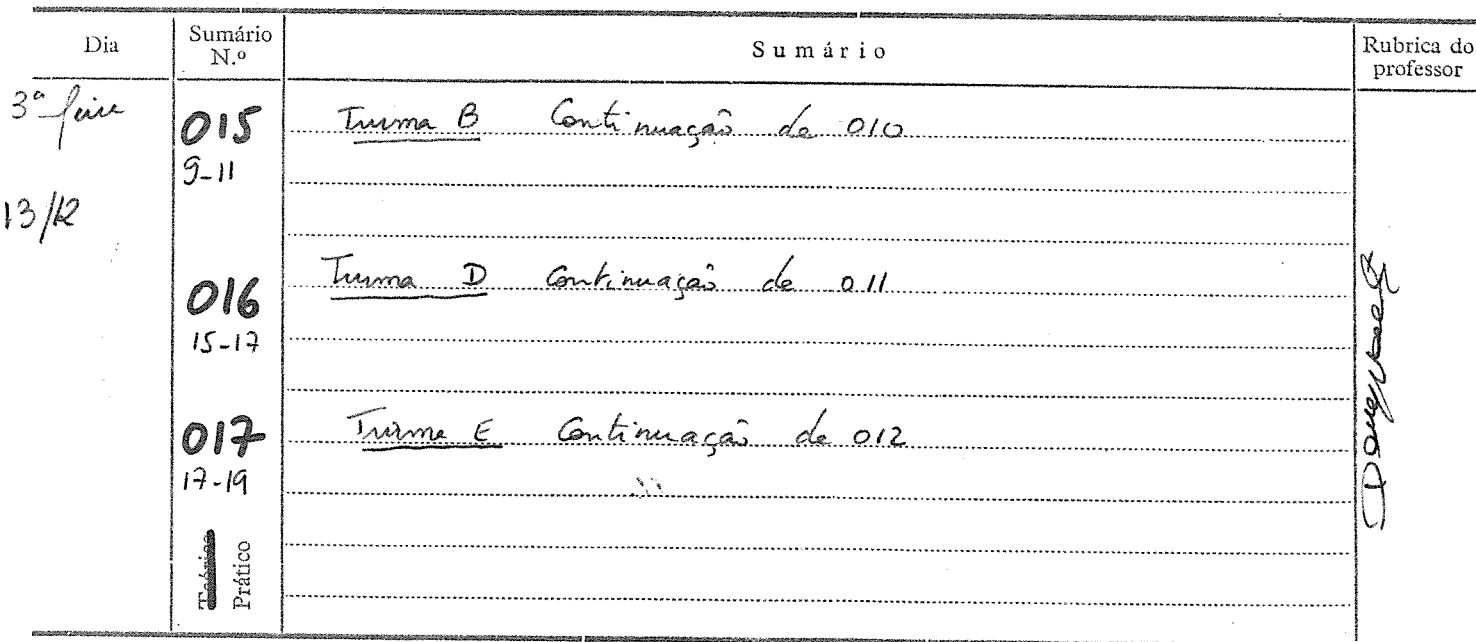 Dia
Sumário
N.º
Sumário
Rubrica do
professor
3ª feira
13/12
015 Turma B Continuação de 010
9-11
016 Turma D Continuação de 011
15-17
017 Turma E Continuação de 012
17-19
Teórico
Prático